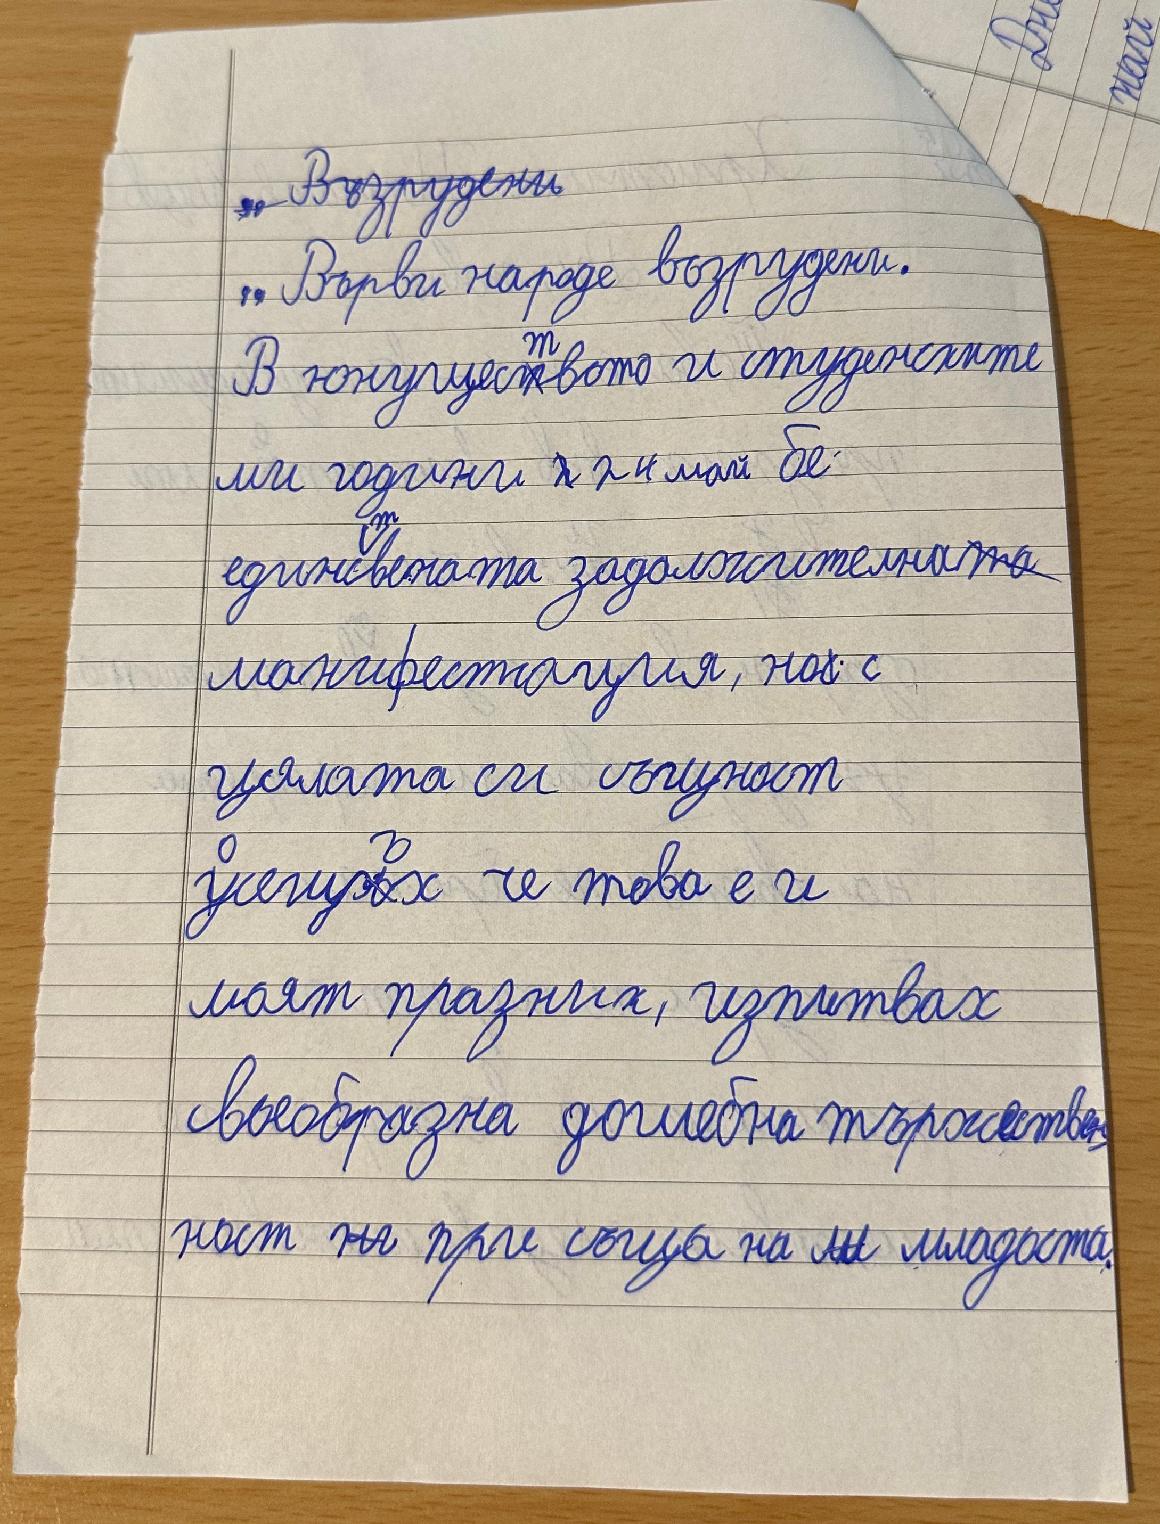 Дне
най
„ Възрудени
„ Върви народе възрудени.
В юнуществото и студенските
ми години 24 май бе
единствената задължителната
манифестация, но с
цялата си същност
усещох че това е и
моят празник, изпитвах
своеобразна дошебна тържествен
ност при съща на младоста.